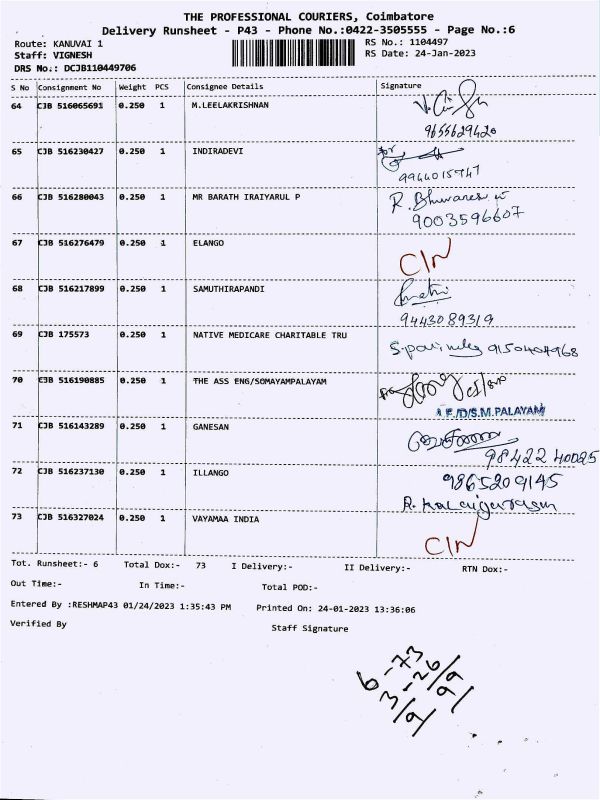 THE PROFESSIONAL COURIERS, Coimbatore
Delivery Runsheet - P43 - Phone No.:0422-3505555 - Page No.:6
Route: KANUVAI 1 RS No.: 1104497
Staff: VIGNESH RS Date: 24-Jan-2023
DRS No.: DCJB110449706
S No Consignment No Weight PCS Consignee Details Signature
64 CJB 516065691 0.250 1 M.LEELAKRISHNAN
9655629420
65 CJB 516230427 0.250 1 INDIRADEVI for
9944015747
66 CJB 516280043 0.250 1 MR BARATH IRAIYARUL P R.
9003596607
67 CJB 516276479 0.250 1 ELANGO C/N
68 CJB 516217899 0.250 1 SAMUTHIRAPANDI
9443089319
69 CJB 175573 0.250 1 NATIVE MEDICARE CHARITABLE TRU 9150404968
70 CJB 516190885 0.250 1 THE ASS ENG/SOMAYAMPALAYAM
A E/D/S.M.PALAYAM
71 CJB 516143289 0.250 1 GANESAN
98422 40025
72 CJB 516237130 0.250 1 ILLANGO 9865209145
73 CJB 516327024 0.250 1 VAYAMAA INDIA C/N
Tot. Runsheet:- 6 Total Dox:- 73 I Delivery:- II Delivery:- RTN Dox:-
Out Time:- In Time:- Total POD:-
Entered By :RESHMAP43 01/24/2023 1:35:43 PM Printed On: 24-01-2023 13:36:06
Verified By Staff Signature
6 -73
3 -26/
9/ 99/